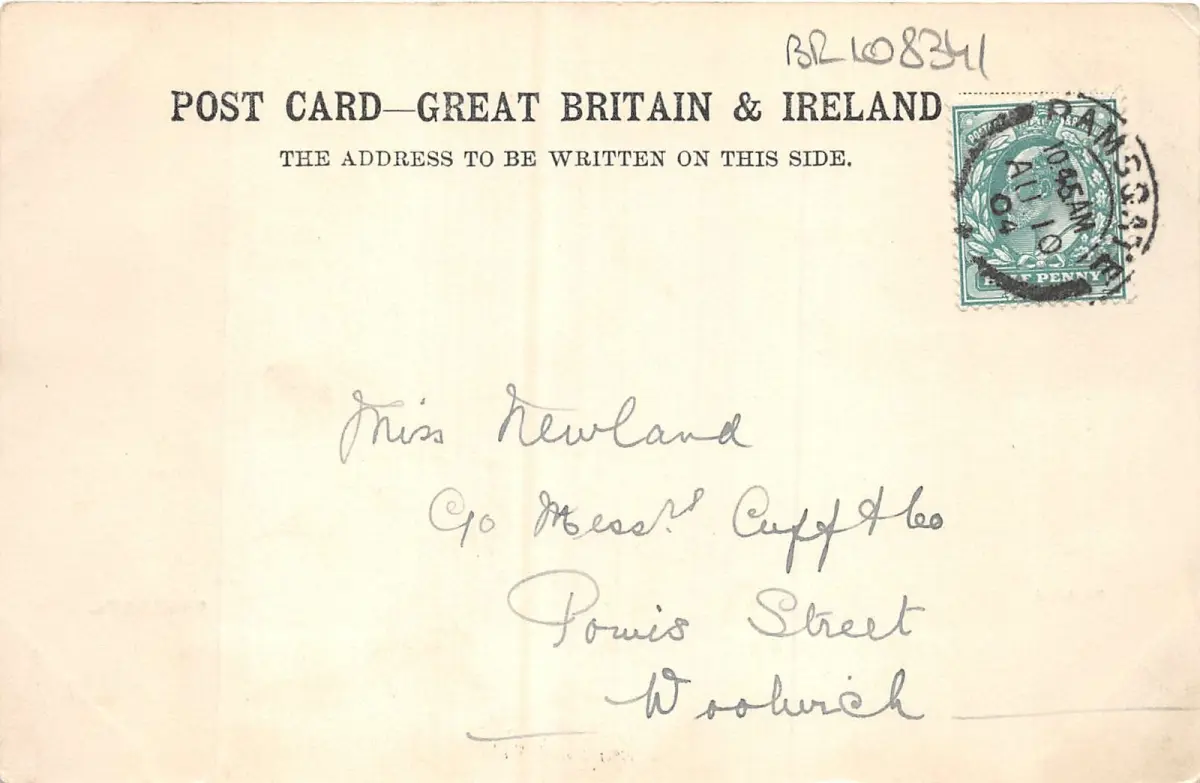 BR108341
POST CARD—GREAT BRITAIN & IRELAND
THE ADDRESS TO BE WRITTEN ON THIS SIDE.
RAMSGATE
10.45 AM
AU 10
04
HALF PENNY
Miss Newland
C/o Messrs Cuff & Co
Powis Street
Woolwich